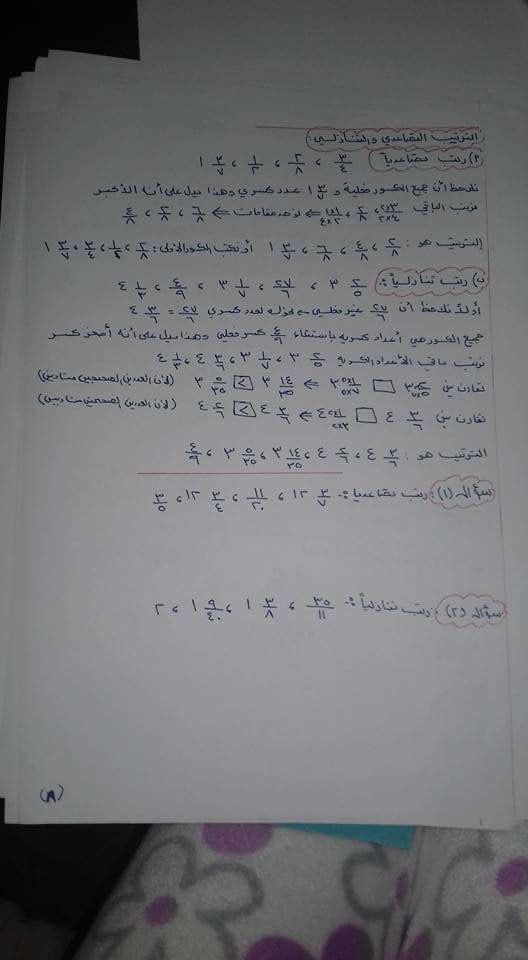 الترتيب التصاعدي والتنازلي:
٢) رتب تصاعدياً ٣/٤ ، ٢/٨ ، ١/٢ ، ١ ٣/٧
نلاحظ أن جميع الكسور فعلية و ١ ٣/٧ عدد كسري وهذا يدل على أنه الأكبر
نرتب الباقي ٣×٢/٤×٢ ، ٢/٨ ، ١×٤/٢×٤ ⇐ توحد مقامات ⇐ ٦/٨ ، ٢/٨ ، ٤/٨
الترتيب هو : ٢/٨ ، ٤/٨ ، ٦/٨ ، ١ ٣/٧ أو نكتب الكسور الأولى: ٢/٨ ، ١/٢ ، ٣/٤ ، ١ ٣/٧
ب) رتب تنازلياً: ٣ ٢/٥ ، ٢٧/٦ ، ٣ ١/٧ ، ٤/٩ ، ٤ ١/٣
أولاً نلاحظ أن ٢٧/٦ غير فعلي نحوله لعدد كسري ٢٧/٦ = ٤ ٣/٦
جميع الكسور هي أعداد كسرية باستثناء ٤/٩ كسر فعلي وهذا يدل على أنه أصغر كسر
نرتب باقي الأعداد الكسرية ٣ ٢/٥ ، ٣ ١/٧ ، ٤ ٣/٦ ، ٤ ١/٣
نقارن بين ٣ ٢×٧/٥×٧ □ ٣ ١×٥/٧×٥ ⇐ ٣ ١٤/٣٥ > ٣ ٥/٣٥ (لأن العددين الصحيحين متساويين)
نقارن بين ٤ ٣/٦ □ ٤ ١×٢/٣×٢ ⇐ ٤ ٣/٦ > ٤ ٢/٦ (لأن العددين الصحيحين متساويين)
الترتيب هو : ٤ ٣/٦ ، ٤ ٢/٦ ، ٣ ١٤/٣٥ ، ٣ ٥/٣٥ ، ٤/٩
سؤال (١): رتب تصاعدياً :- ١٢ ٣/٧ ، ١١/٢٠ ، ١٢ ٣/٤ ، ٣/٥
سؤال (٢): رتب تنازلياً :- ٣٥/١١ ، ١ ٣/٨ ، ١ ٩/٤٠ ، ٢
(٨)